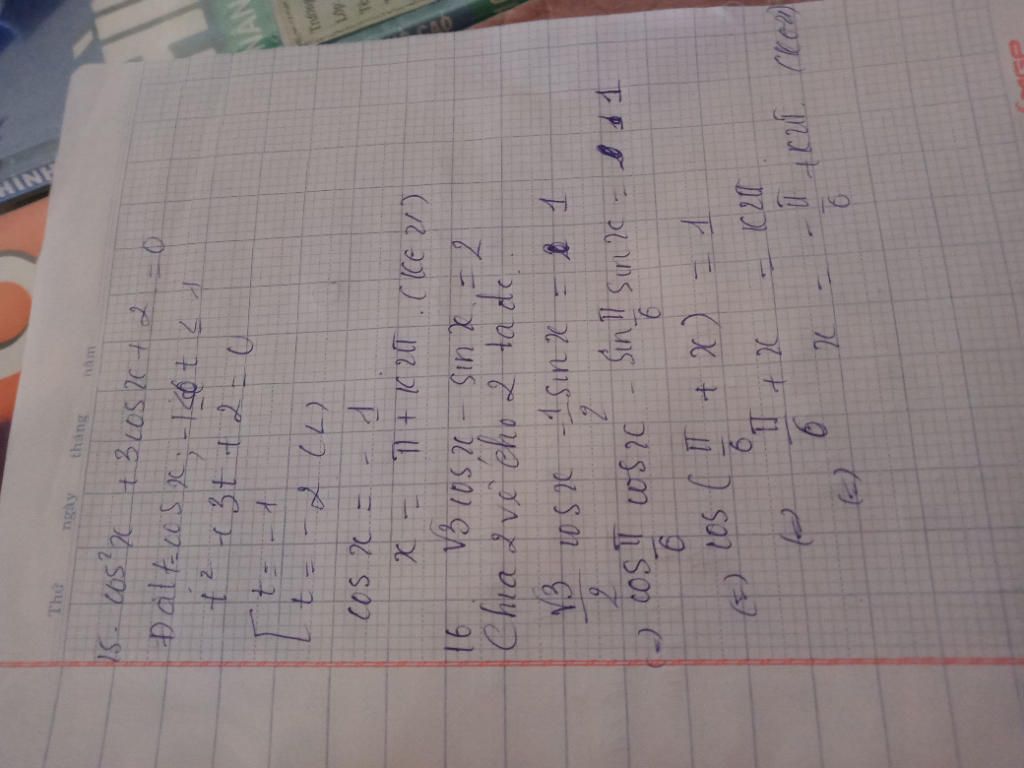 Thứ ngày tháng năm
15. cos²x + 3cosx + 2 = 0
Đặt t = cosx, -1 ≤ t ≤ 1
t² + 3t + 2 = 0
t = -1
t = -2 (L)
cosx = -1
x = π + k2π. (k∈Z)
16 √3 cosx - sinx = 2
Chia 2 vế cho 2 ta đc.
√3/2 cosx - 1/2 sinx = 1
(=) cos π/6 cosx - sin π/6 sinx = 1
(=) cos(π/6 + x) = 1
(=) π/6 + x = k2π
(=) x = -π/6 + k2π. (k∈Z)